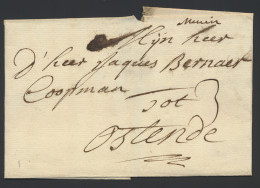 Menin
Mijn heer
D'heer Jaques Bernaer
Coopman
tot 3
Ostende